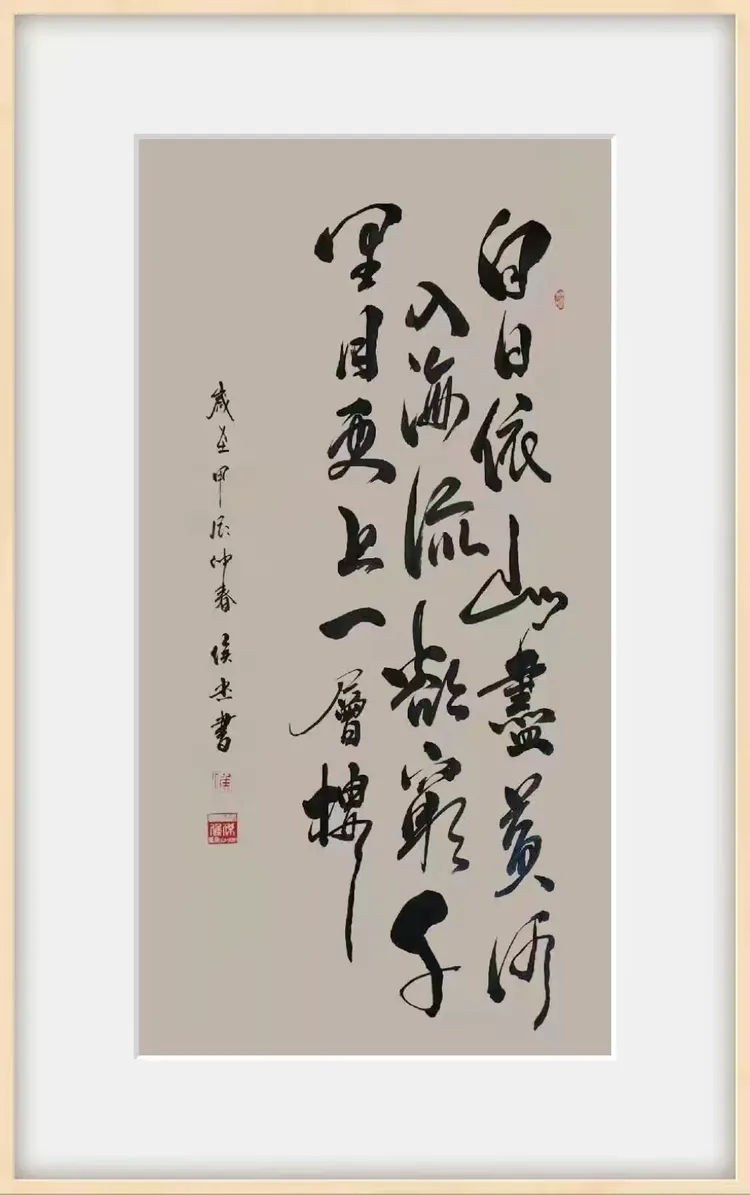 白日依山盡黃河
入海流欲窮千
里目更上一層樓
歲在甲辰仲春 侯杰書